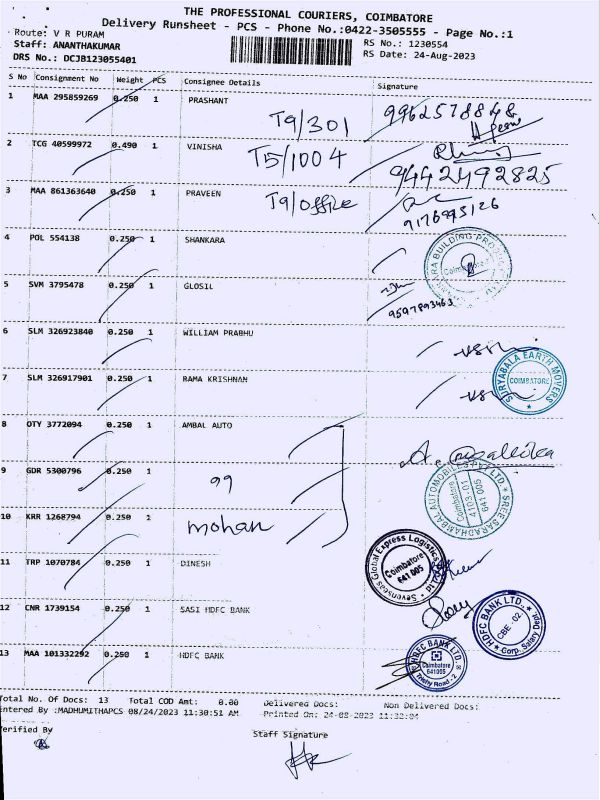 THE PROFESSIONAL COURIERS, COIMBATORE
Delivery Runsheet - PCS - Phone No.:0422-3505555 - Page No.:1
Route: V R PURAM
RS No.: 1230554
Staff: ANANTHAKUMAR
RS Date: 24-Aug-2023
DRS No.: DCJB123055401
S No Consignment No Weight PCS Consignee Details Signature
1 MAA 295859269 0.250 1 PRASHANT
T9/301 9962578848
2 TCG 40599972 0.490 1 VINISHA
T5/1004 9442492825
3 MAA 861363640 0.250 1 PRAVEEN
T9/office 9176995126
4 POL 554138 0.250 1 SHANKARA
5 SVM 3795478 0.250 1 GLOSIL
9597893463
6 SLM 326923840 0.250 1 WILLIAM PRABHU
7 SLM 326917901 0.250 1 RAMA KRISHNAN
SURYABALA EARTH MOVERS
COIMBATORE
8 OTY 3772094 0.250 1 AMBAL AUTO
9 GDR 5300796 0.250
99
SREE SARADHAMBAL AUTOMOBILES PVT LTD
Coimbatore
4103-01
641 005
10 KRR 1268794 0.250
mohan
11 TRP 1070784 0.250 1 DINESH
Sevenseas Global Express Logistics
Coimbatore
641 005
12 CNR 1739154 0.250 1 SASI HDFC BANK
HDFC BANK LTD.
CBE - 02
Corp. Salary Dept
13 MAA 101332292 0.250 1 HDFC BANK
HDFC BANK LTD.
Coimbatore
641005
Trichy Road - 2
Total No. Of Docs: 13 Total COD Amt: 0.00 Delivered Docs: Non Delivered Docs:
Entered By :MADHUMITHAPCS 08/24/2023 11:30:51 AM Printed On: 24-08-2023 11:32:04
Verified By
Staff Signature